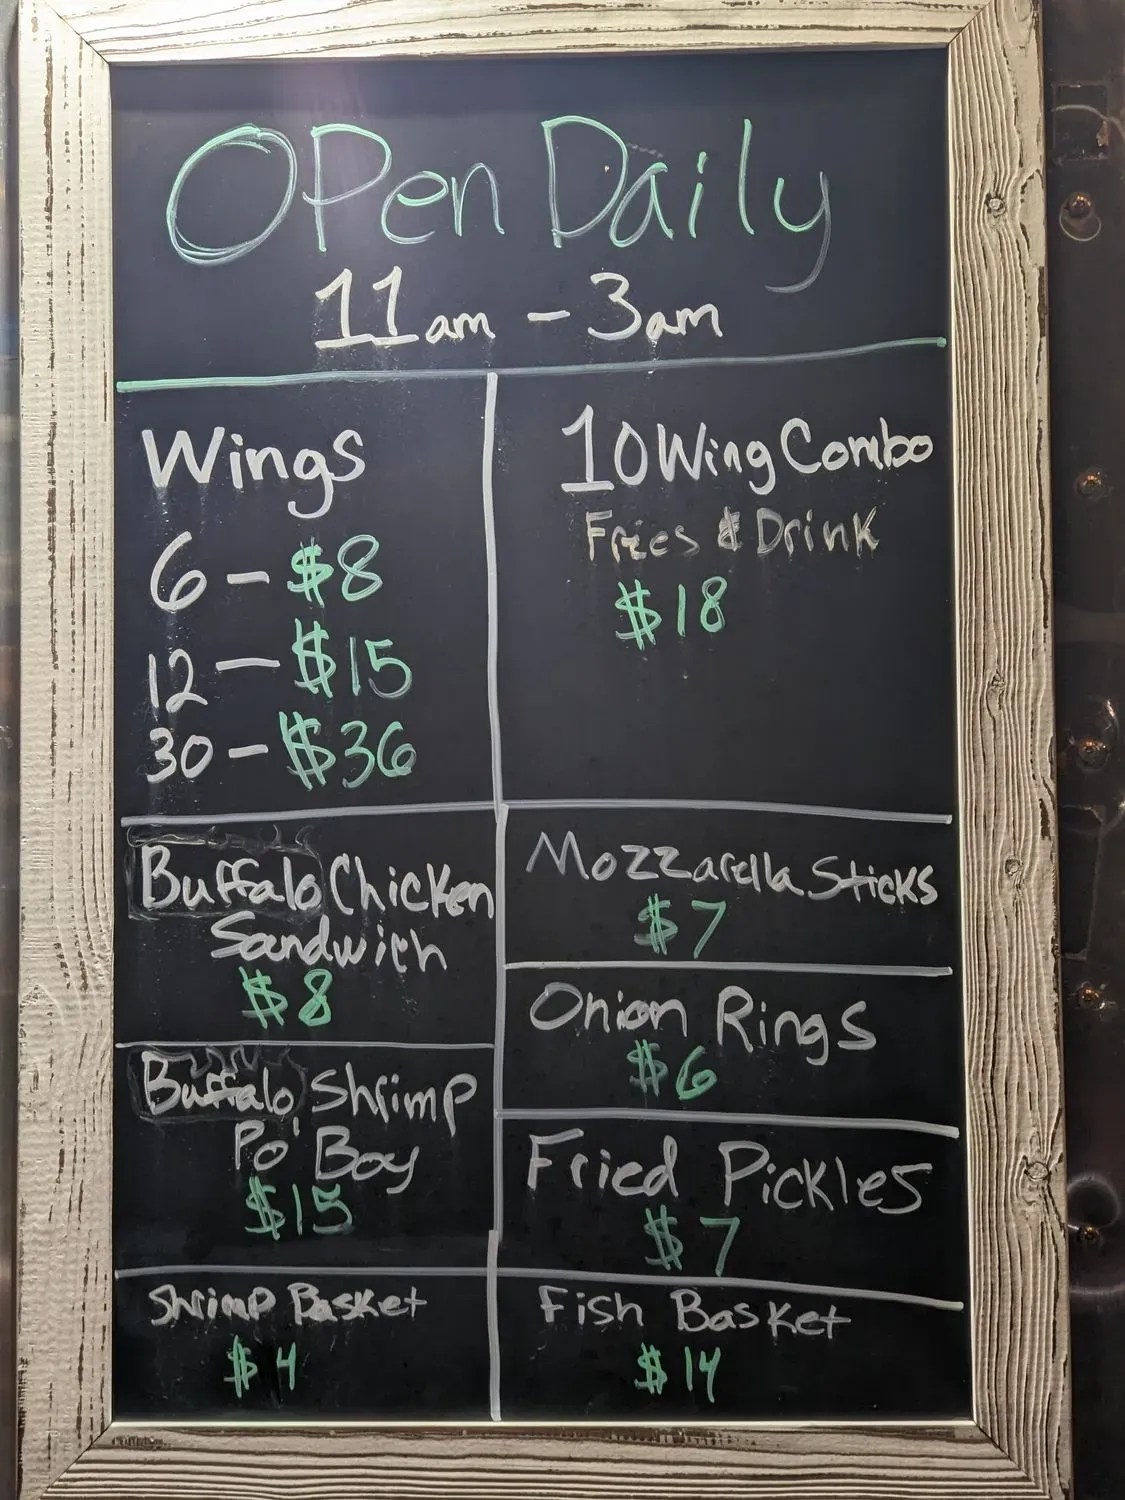 OPen Daily
11am - 3am
Wings
6 - $8
12 - $15
30 - $36
10 Wing Combo
Fries & Drink
$18
Buffalo Chicken
Sandwich
$8
Buffalo Shrimp
Po' Boy
$15
Shrimp Basket
$4
Mozzarella Sticks
$7
Onion Rings
$6
Fried Pickles
$7
Fish Basket
$14